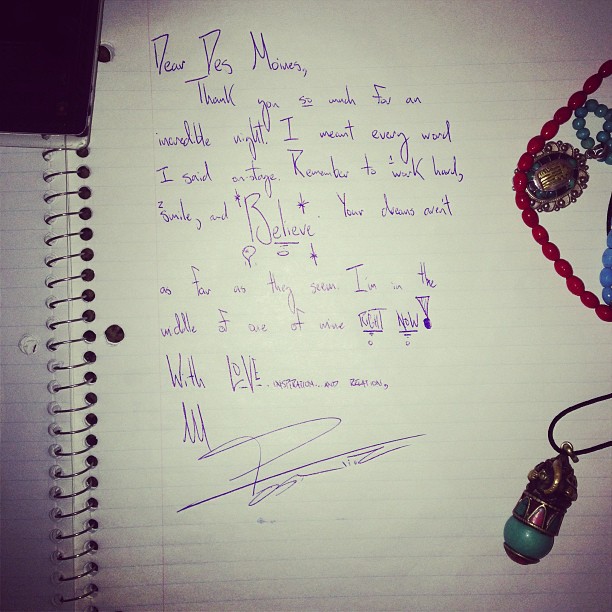 Dear Des Moines,
Thank you so much for an
incredible night. I meant every word
I said on-stage. Remember to 1 work hard,
2 smile, and *Believe*. Your dreams aren't
as far as they seem. I'm in the
middle of one of mine RIGHT NOW!
With LOVE. INSPIRATION... AND